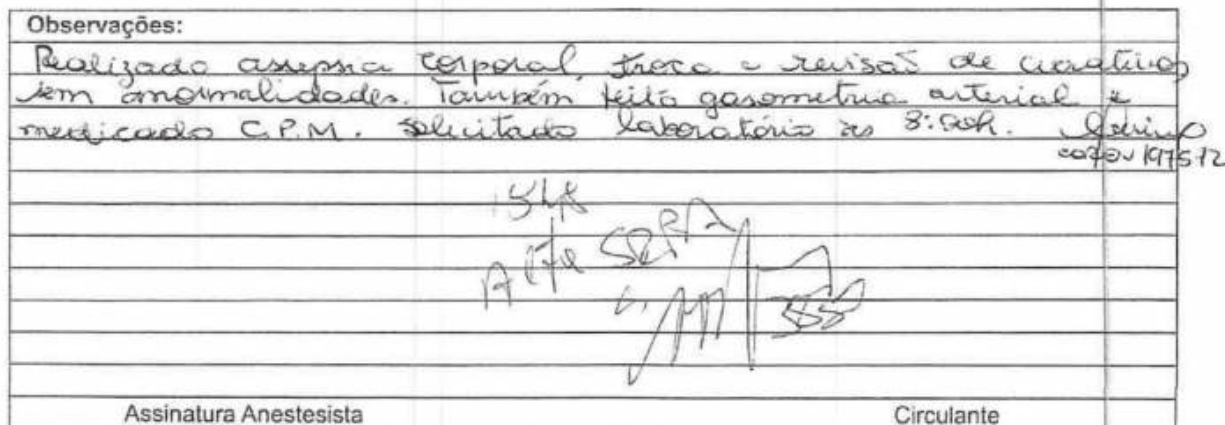 Observações:
Realizado assepsia corporal, troca e revisão de curativos
sem anormalidades. Também feito gasometria arterial e
medicado C.P.M. Solicitado laboratório às 8:
197512
Alta SRPA
Assinatura Anestesista Circulante